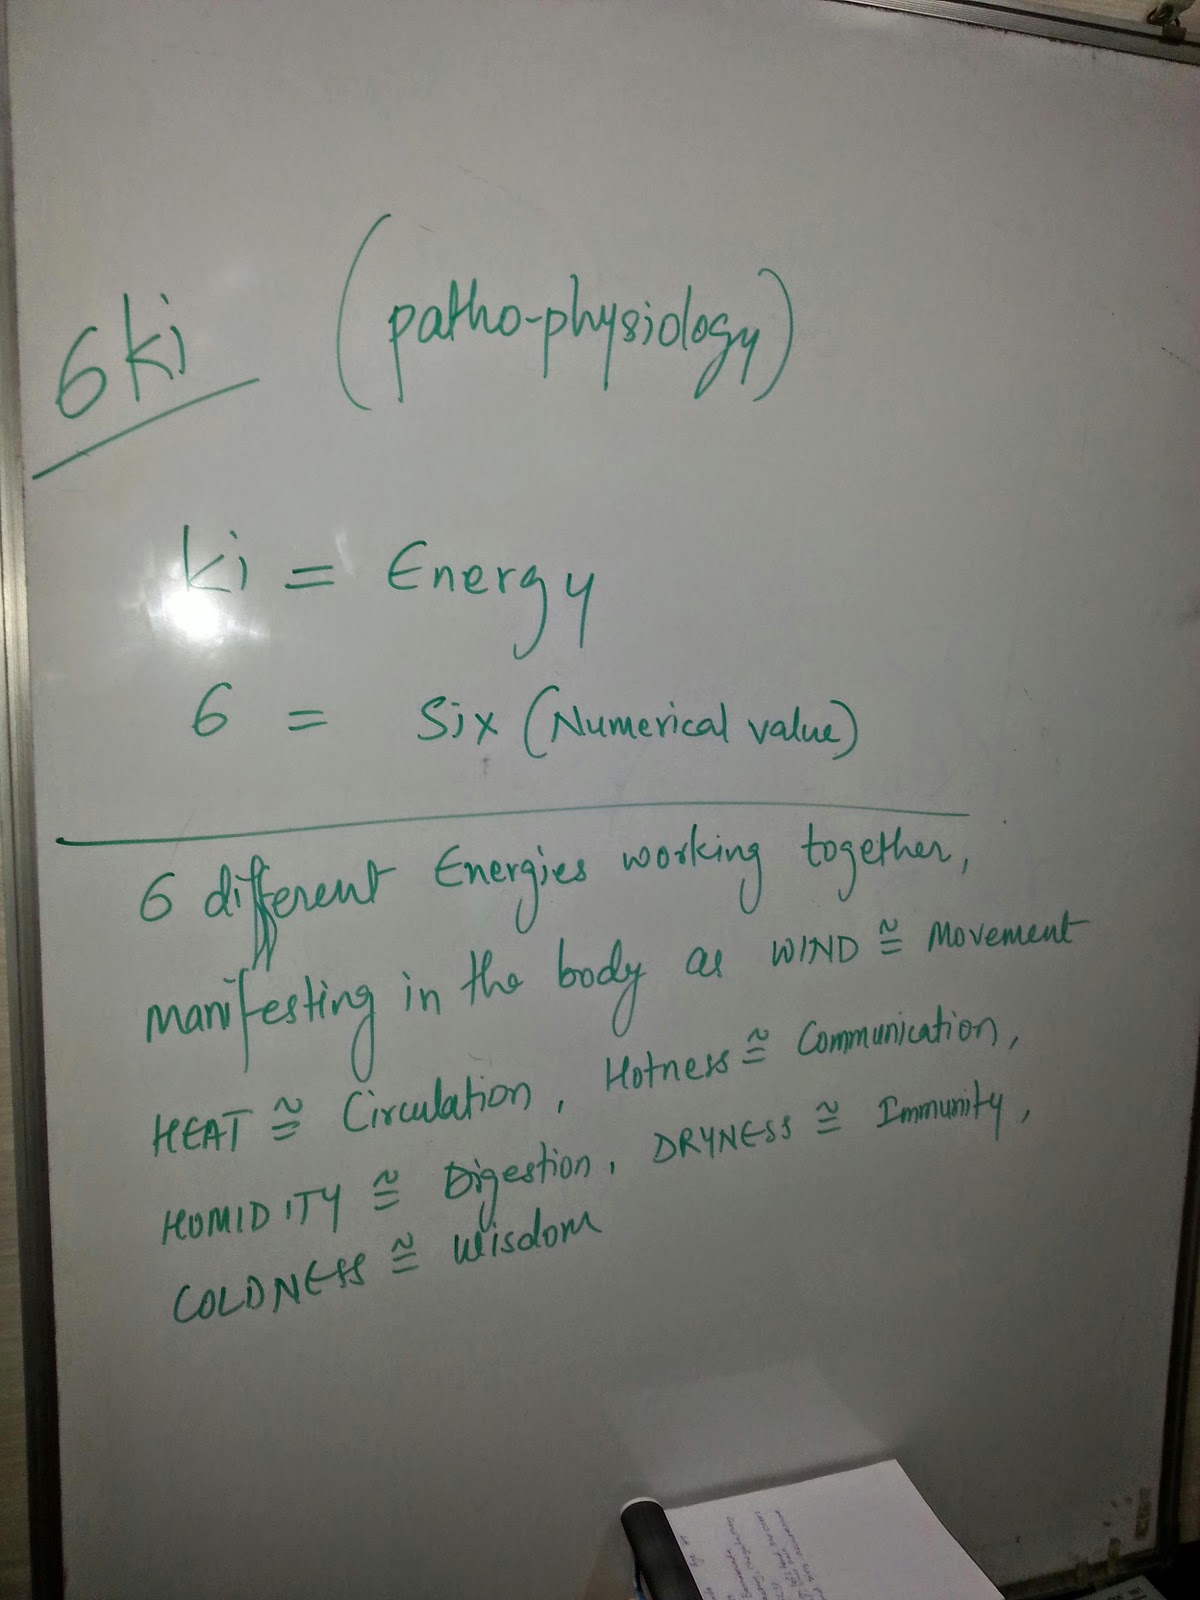 6ki (patho-physiology)
ki = Energy
6 = Six (Numerical value)
6 different Energies working together,
manifesting in the body as WIND ≅ Movement
HEAT ≅ Circulation, Hotness ≅ Communication,
HUMIDITY ≅ Digestion, DRYNESS ≅ Immunity,
COLDNESS ≅ Wisdom